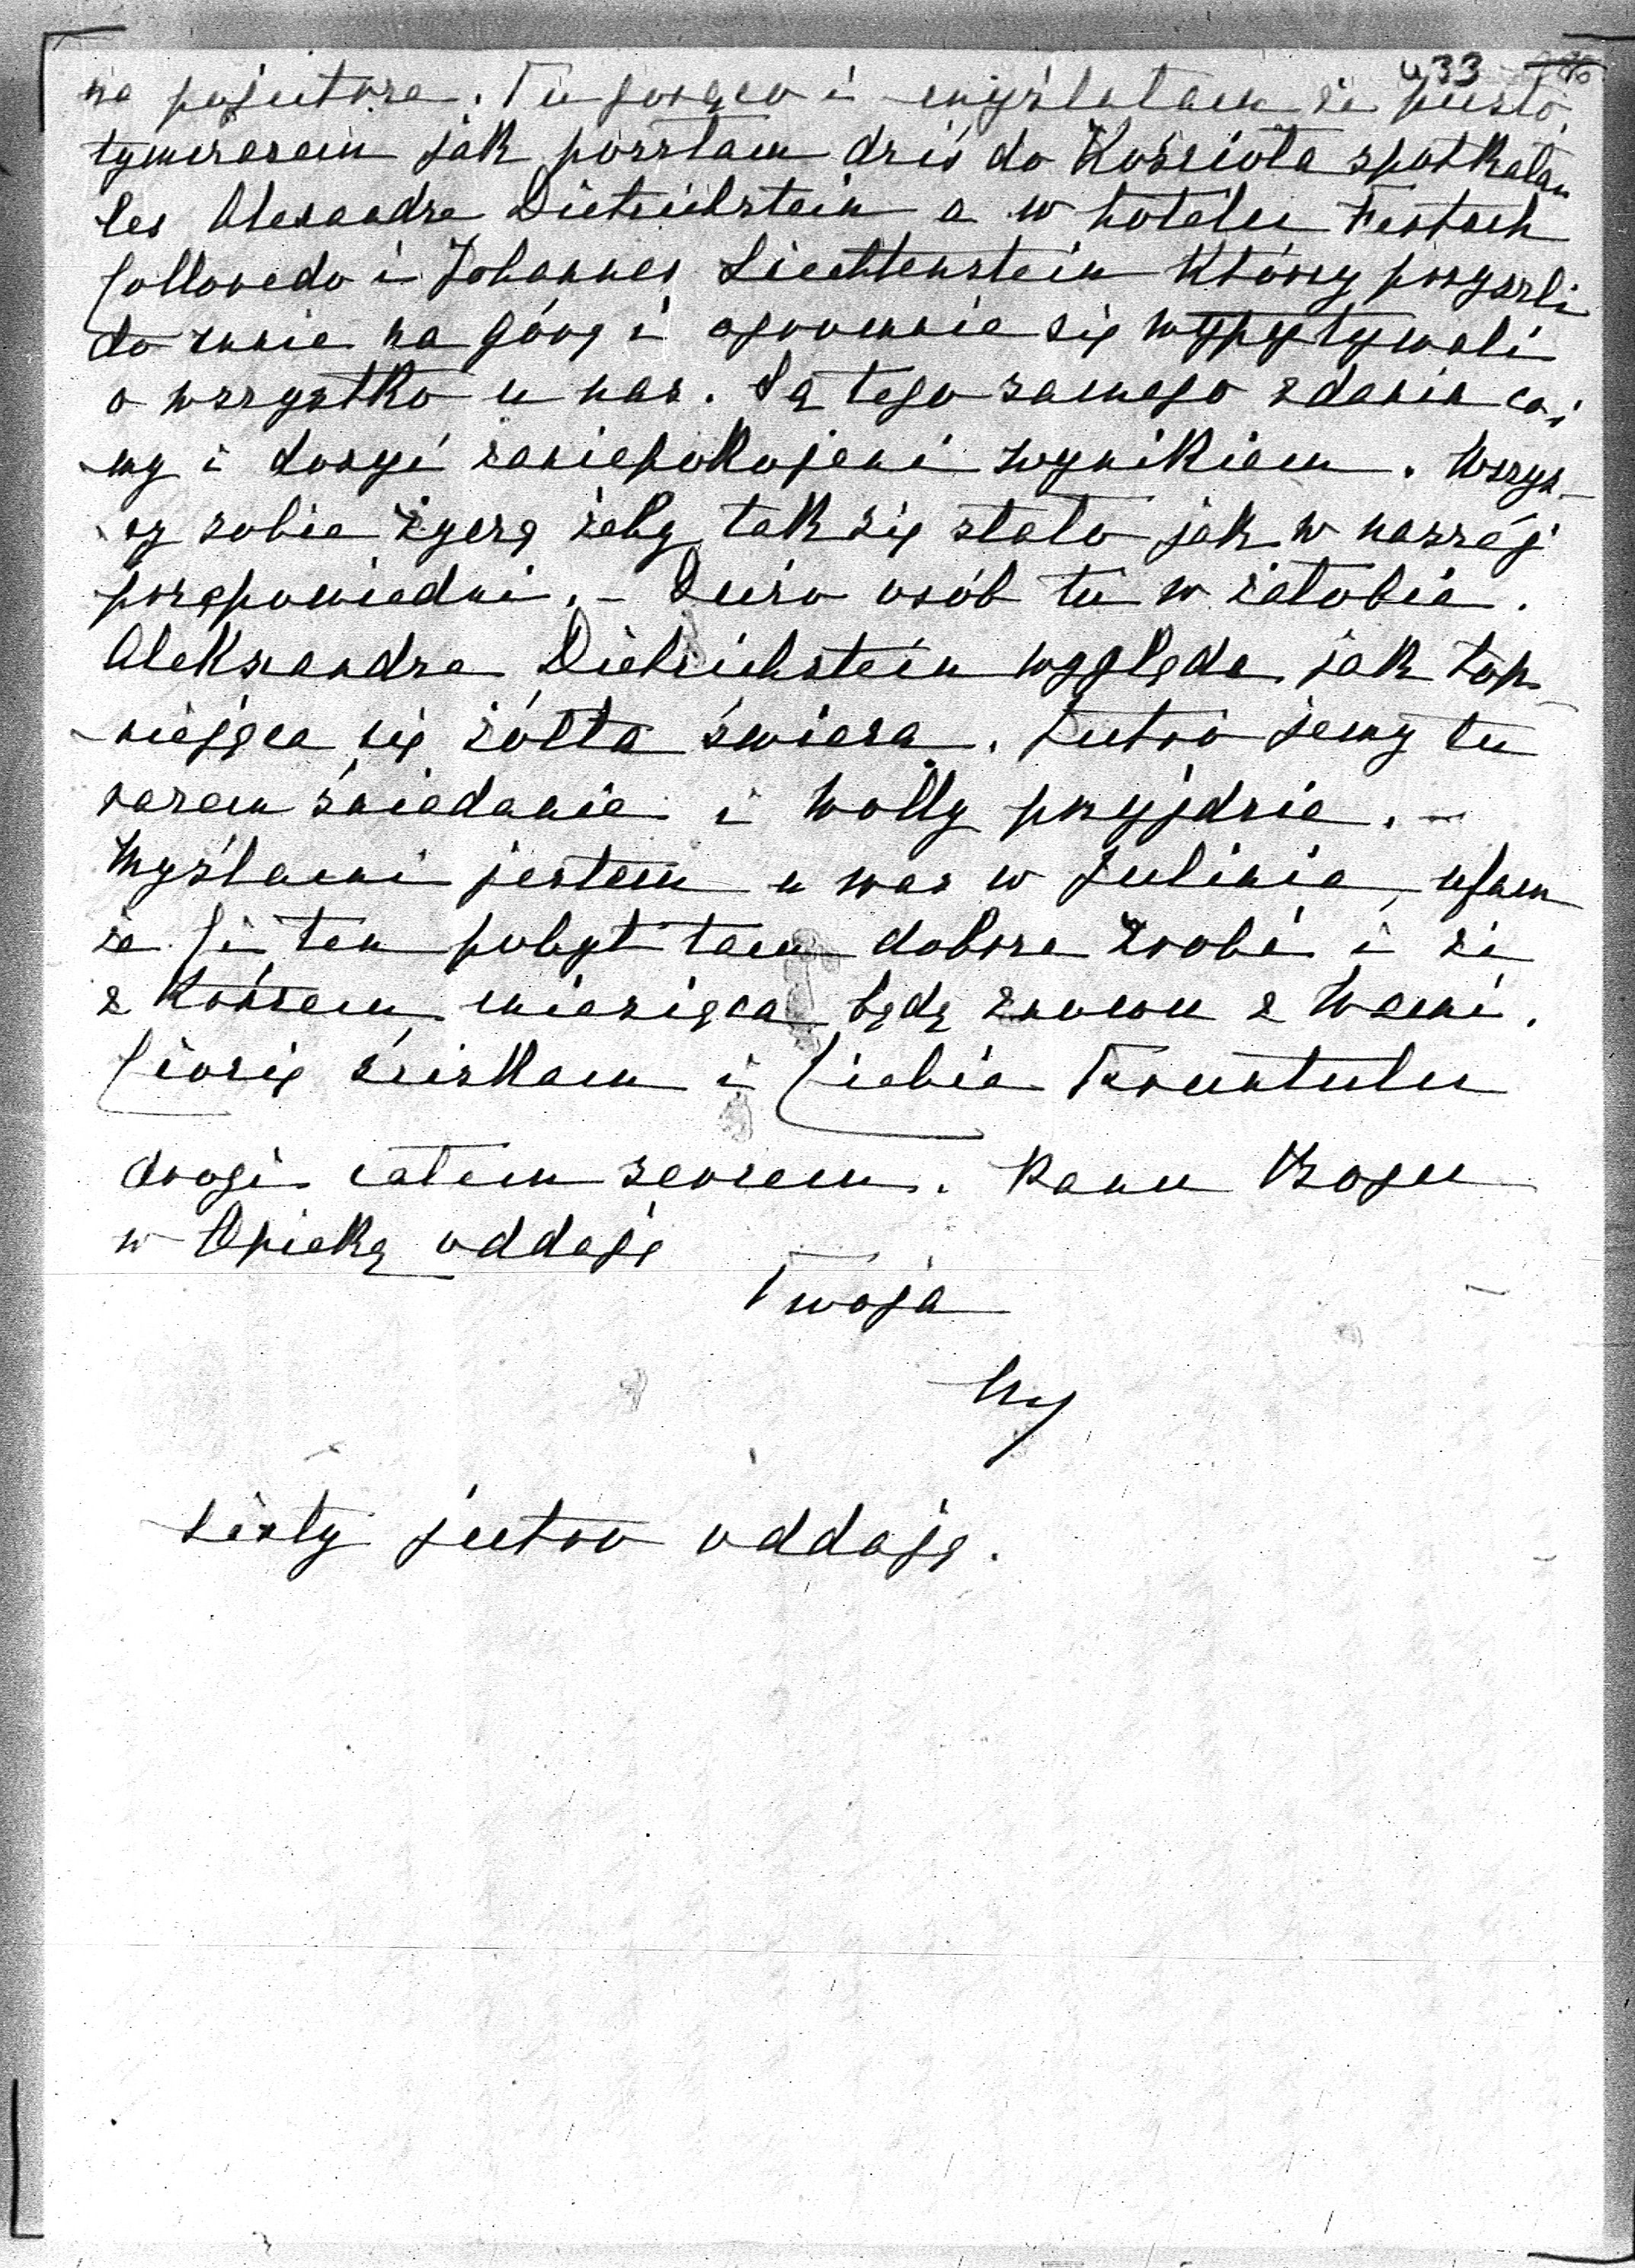 433
na pojutrze. Tu gorąco i myślałam że pusto,
tymczasem jak poszłam dziś do Kościoła spotkałam
les Alexandra Dietrichstein a w hotelu
Colloredo i Johannes Liechtenstein Którzy przyszli
do mnie na górę i ogromnie się wypytywali
o wszystko u nas. Są tego samego zdania co i
my i drogi zaniepokojeni wynikiem. Wszys-
cy sobie życzą żeby tak się stało jak w naszéj
przepowiedni. – Dużo osób tu w żałobie.
Aleksandra Dietrichstein wygląda jak top-
niejąca się żółta świeca. Jutro jemy tu
razem śniadanie i Wolly przyjdzie. –
Myślami jestem u was w Julinie, ufam
że Ci ten pobyt tam dobrze zrobi i że
z Końcem miesiąca będę znowu z Wami.
Ciocię ściskam i Ciebie
drogi całem sercem. Panu Bogu
w Opiekę oddaję
Twoja
listy jutro oddaję.